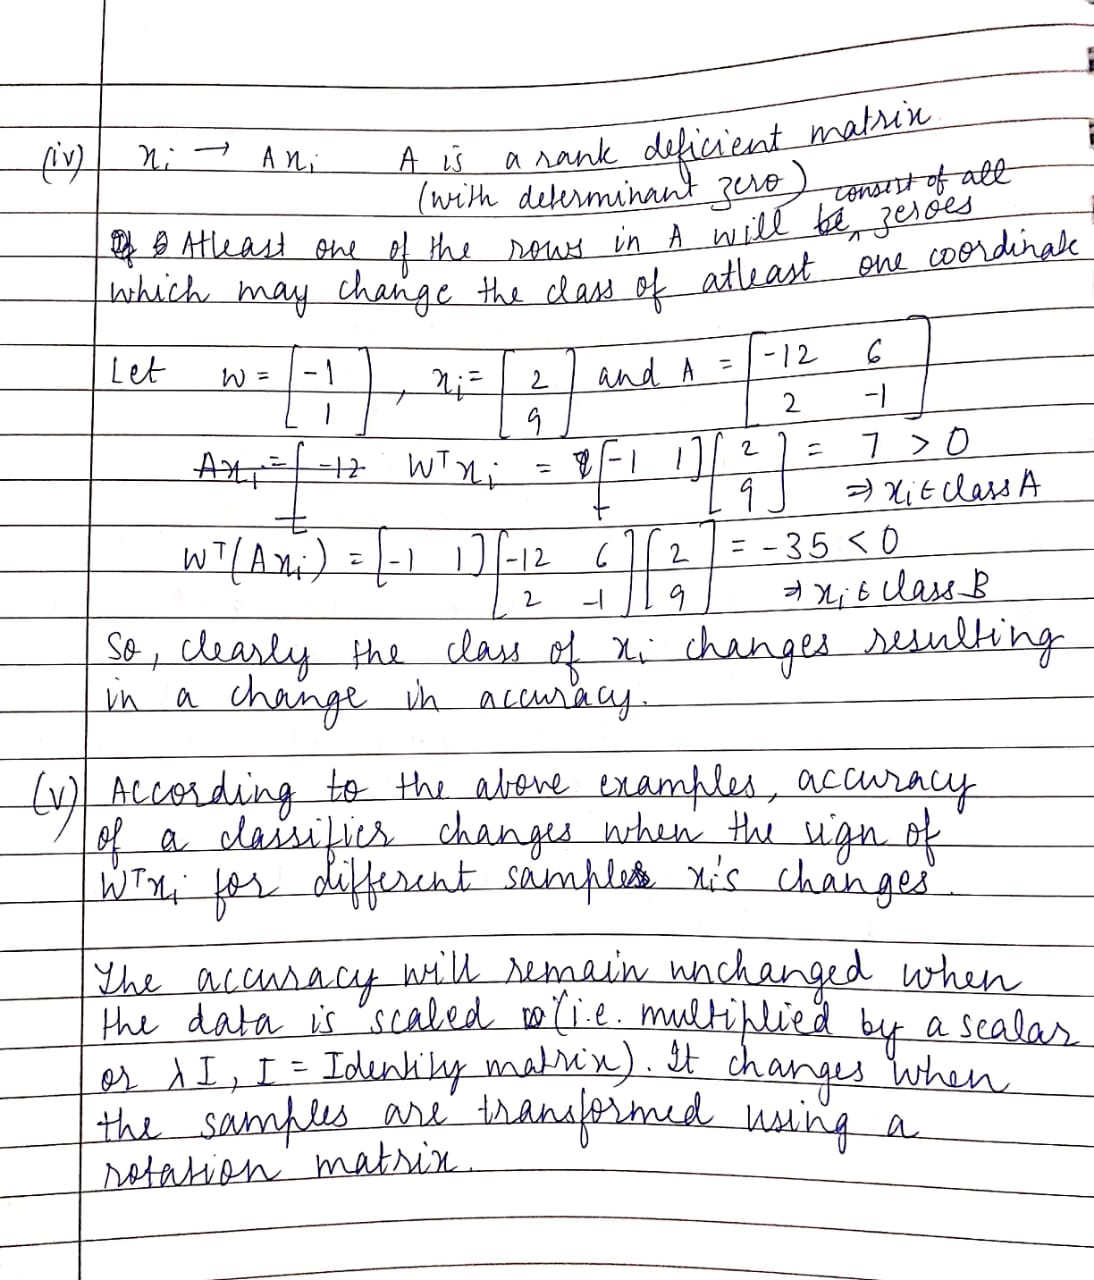 (iv) xi → Axi A is a rank deficient matrix
(with determinant zero)
Atleast one of the rows in A will be consist of all zeroes
which may change the class of atleast one coordinate
Let w = [-1 1], xi = [2 9] and A = [-12 6 2 -1]
Axi = [-12 WTxi = [-1 1][2 9] = 7 > 0
⇒ xi ∈ class A
WT(Axi) = [-1 1][-12 6 2 -1][2 9] = -35 < 0
⇒ xi ∈ class B
So, clearly the class of xi changes resulting
in a change in accuracy.
(v) According to the above examples, accuracy
of a classifier changes when the sign of
WTxi for different samples xi's changes.
The accuracy will remain unchanged when
the data is scaled (i.e. multiplied by a scalar
or λI, I = Identity matrix). It changes when
the samples are transformed using a
rotation matrix.